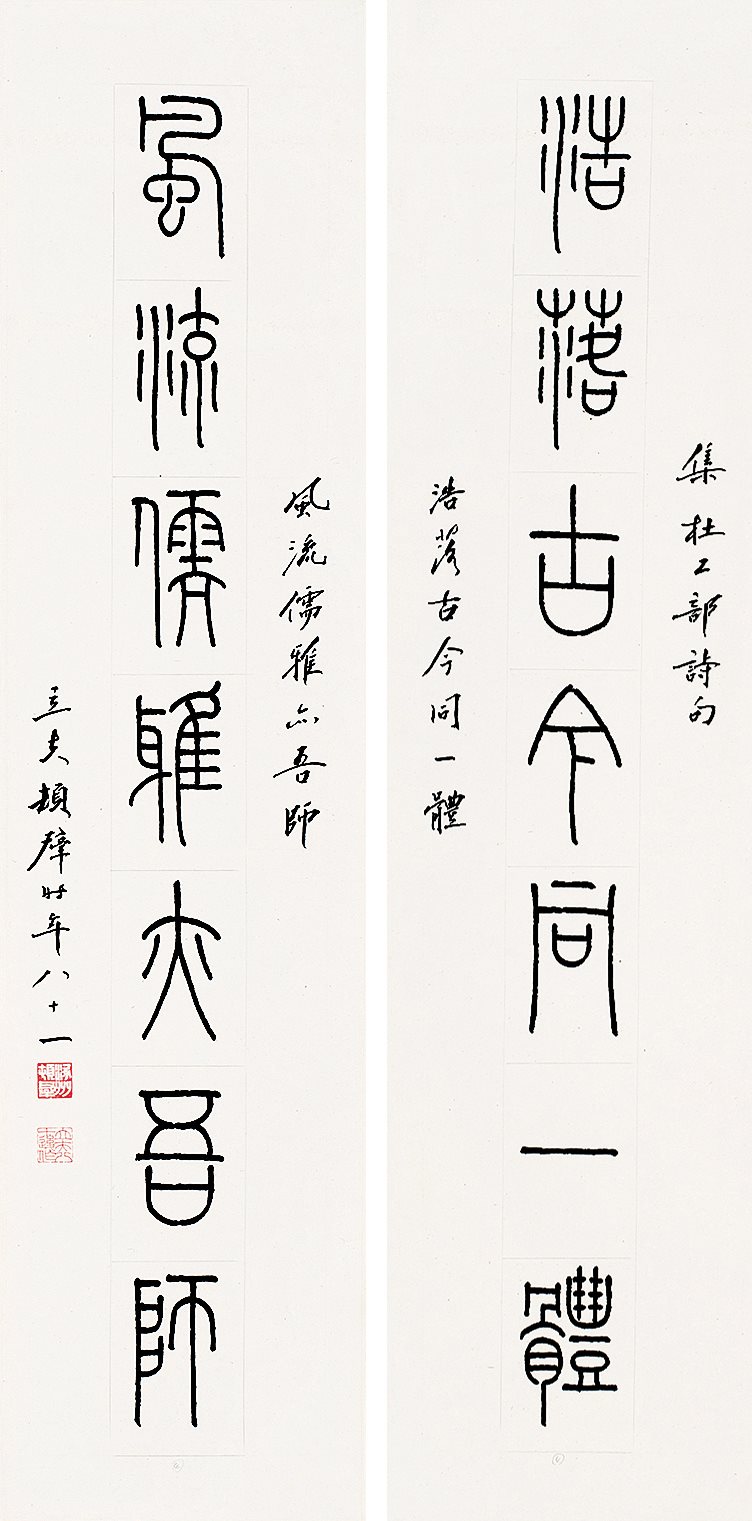 集杜工部詩句
浩落古今同一體
浩落古今同一體
風流儒雅亦吾師
風流儒雅亦吾師
立夫頓璧時年八十一